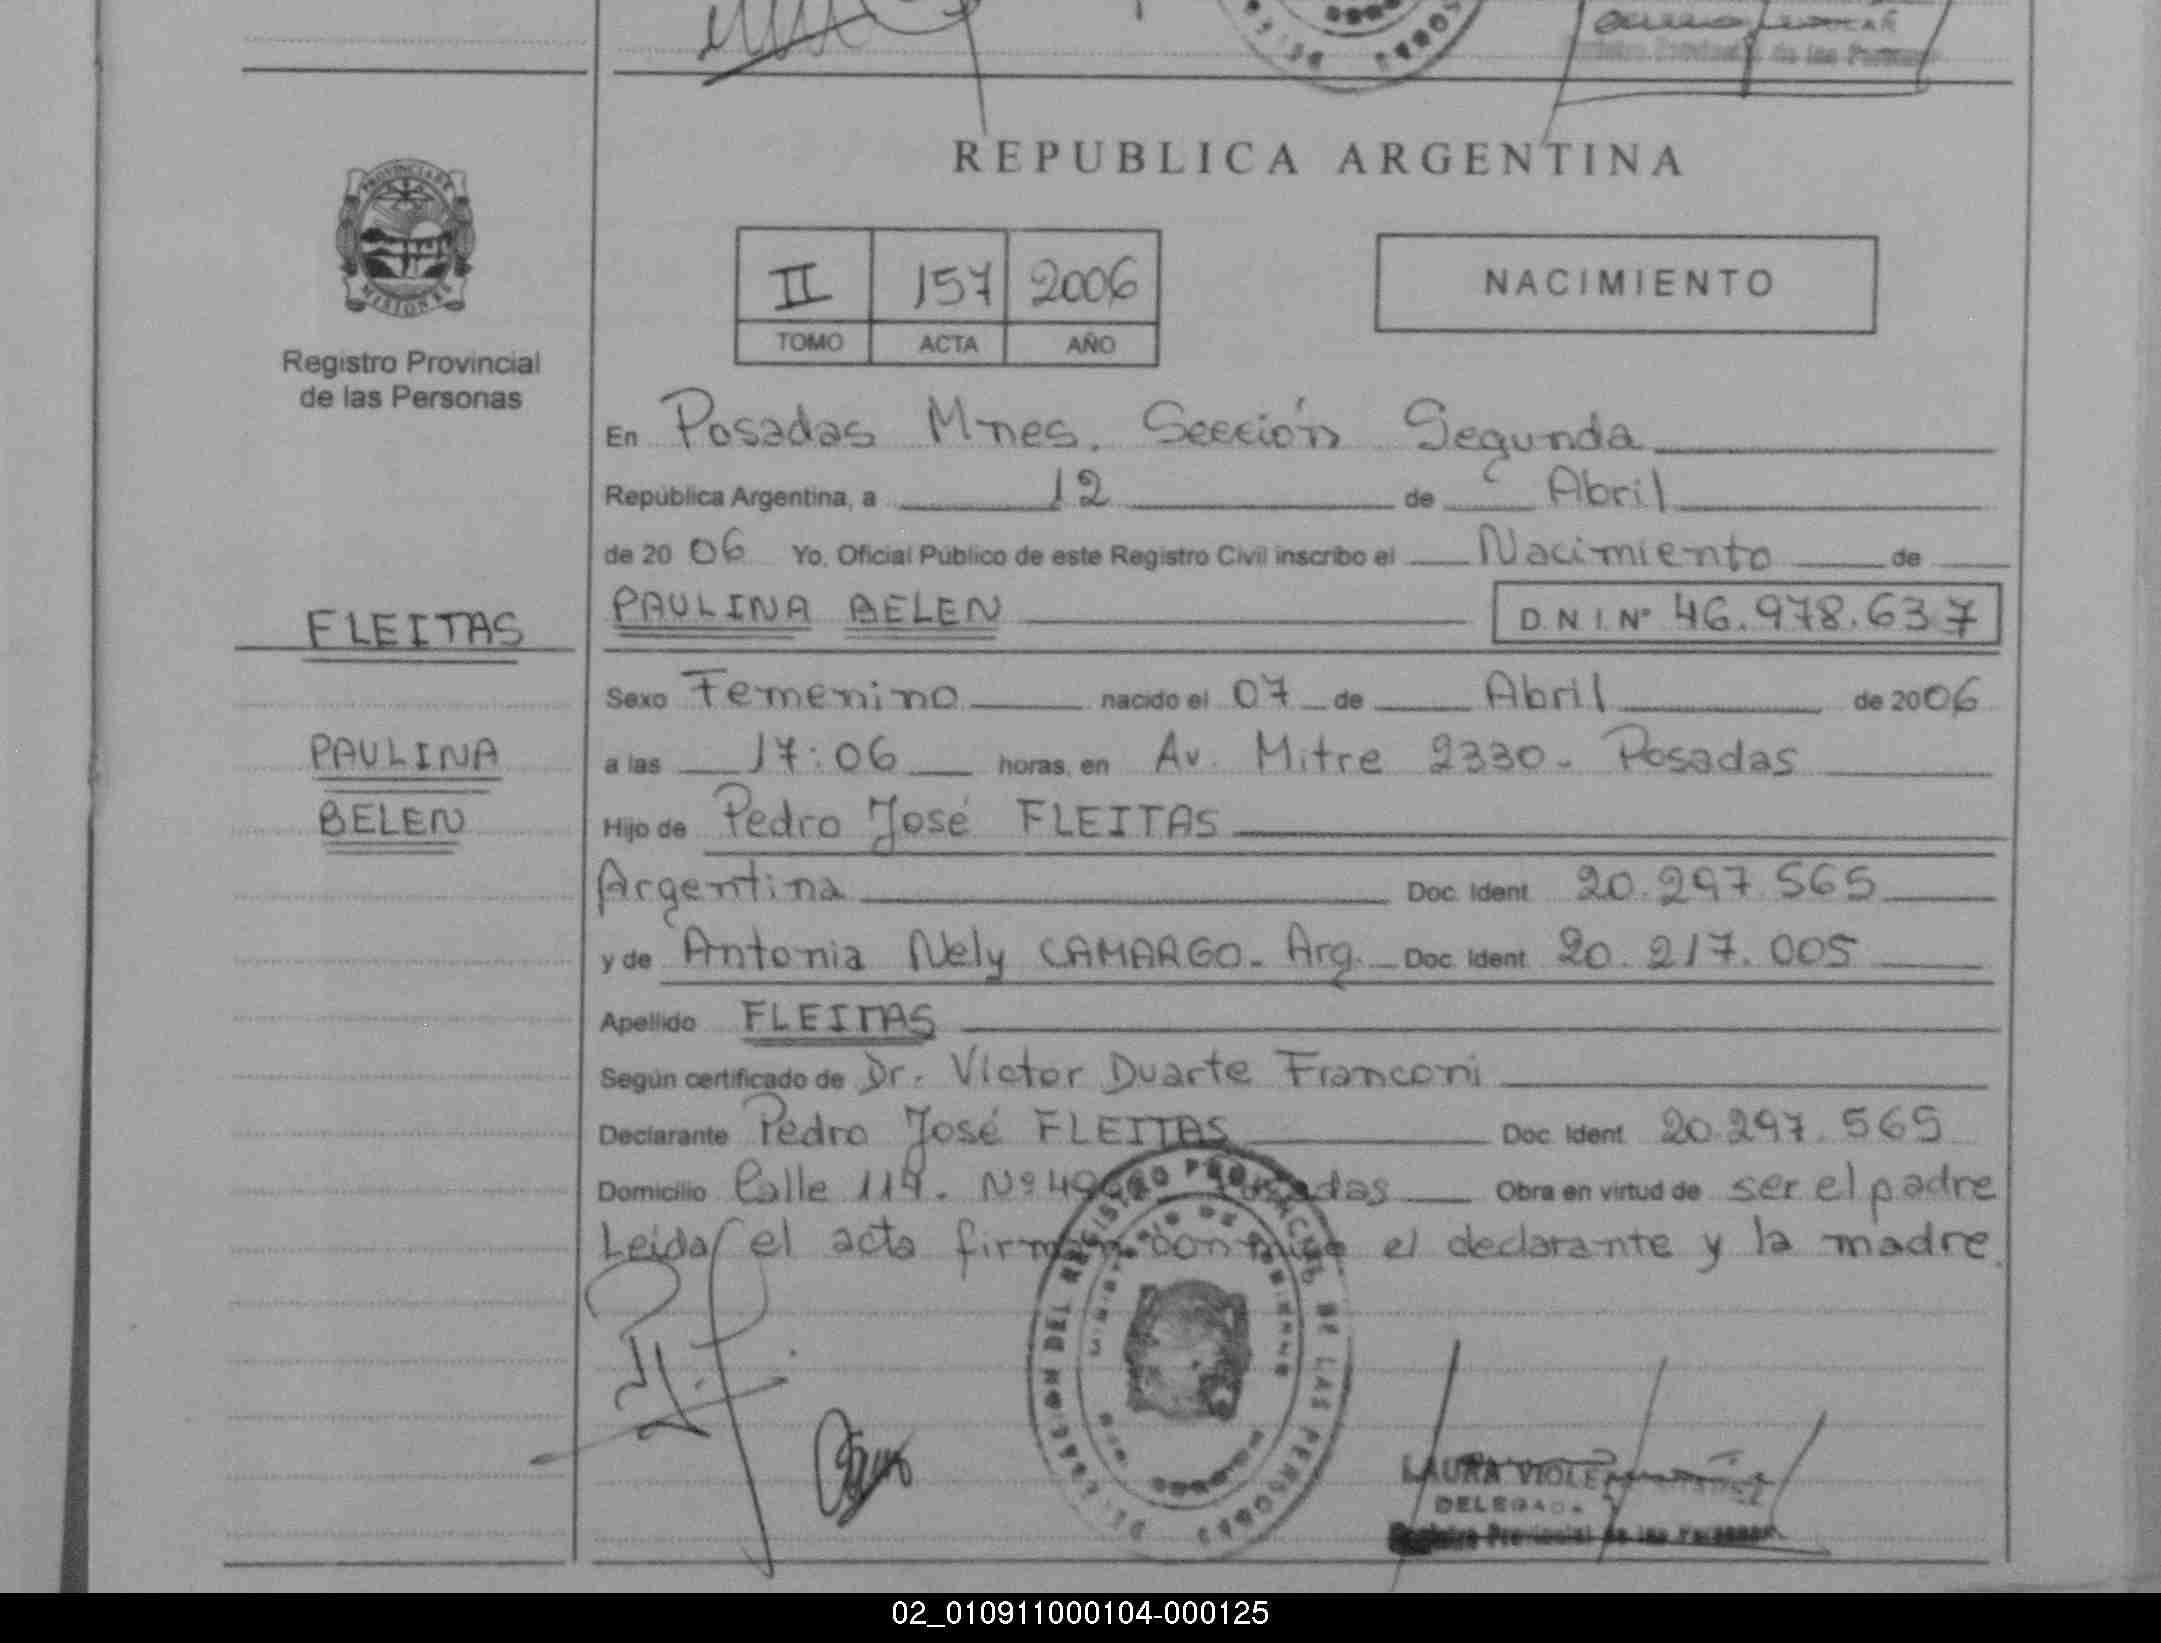 REPUBLICA ARGENTINA
PROVINCIA DE
MISIONES
Registro Provincial
de las Personas
II 157 2006
TOMO ACTA AÑO
NACIMIENTO
En Posadas Mnes. Sección Segunda
República Argentina, a 12 de Abril
de 2006 Yo, Oficial Público de este Registro Civil inscribo el Nacimiento de
PAULINA BELEN D.N.I. Nº 46.978.637
FLEITAS
PAULINA
BELEN
Sexo Femenino nacido el 07 de Abril de 2006
a las 17:06 horas, en Av. Mitre 2330 - Posadas
Hijo de Pedro José FLEITAS
Argentina Doc. Ident. 20.297.565
y de Antonia Nely CAMARGO - Arg. Doc. Ident. 20.217.005
Apellido FLEITAS
Según certificado de Dr. Victor Duarte Franconi
Declarante Pedro José FLEITAS Doc. Ident. 20.297.565
Domicilio Calle 119. Nº Posadas Obra en virtud de ser el padre
Leida el acta firman conmigo el declarante y la madre.
DELEGACION DEL REGISTRO PROVINCIAL DE LAS PERSONAS
MINISTERIO DE GOBIERNO
LAURA
DELEGADA
Registro Provincial de las Personas
02_010911000104-000125